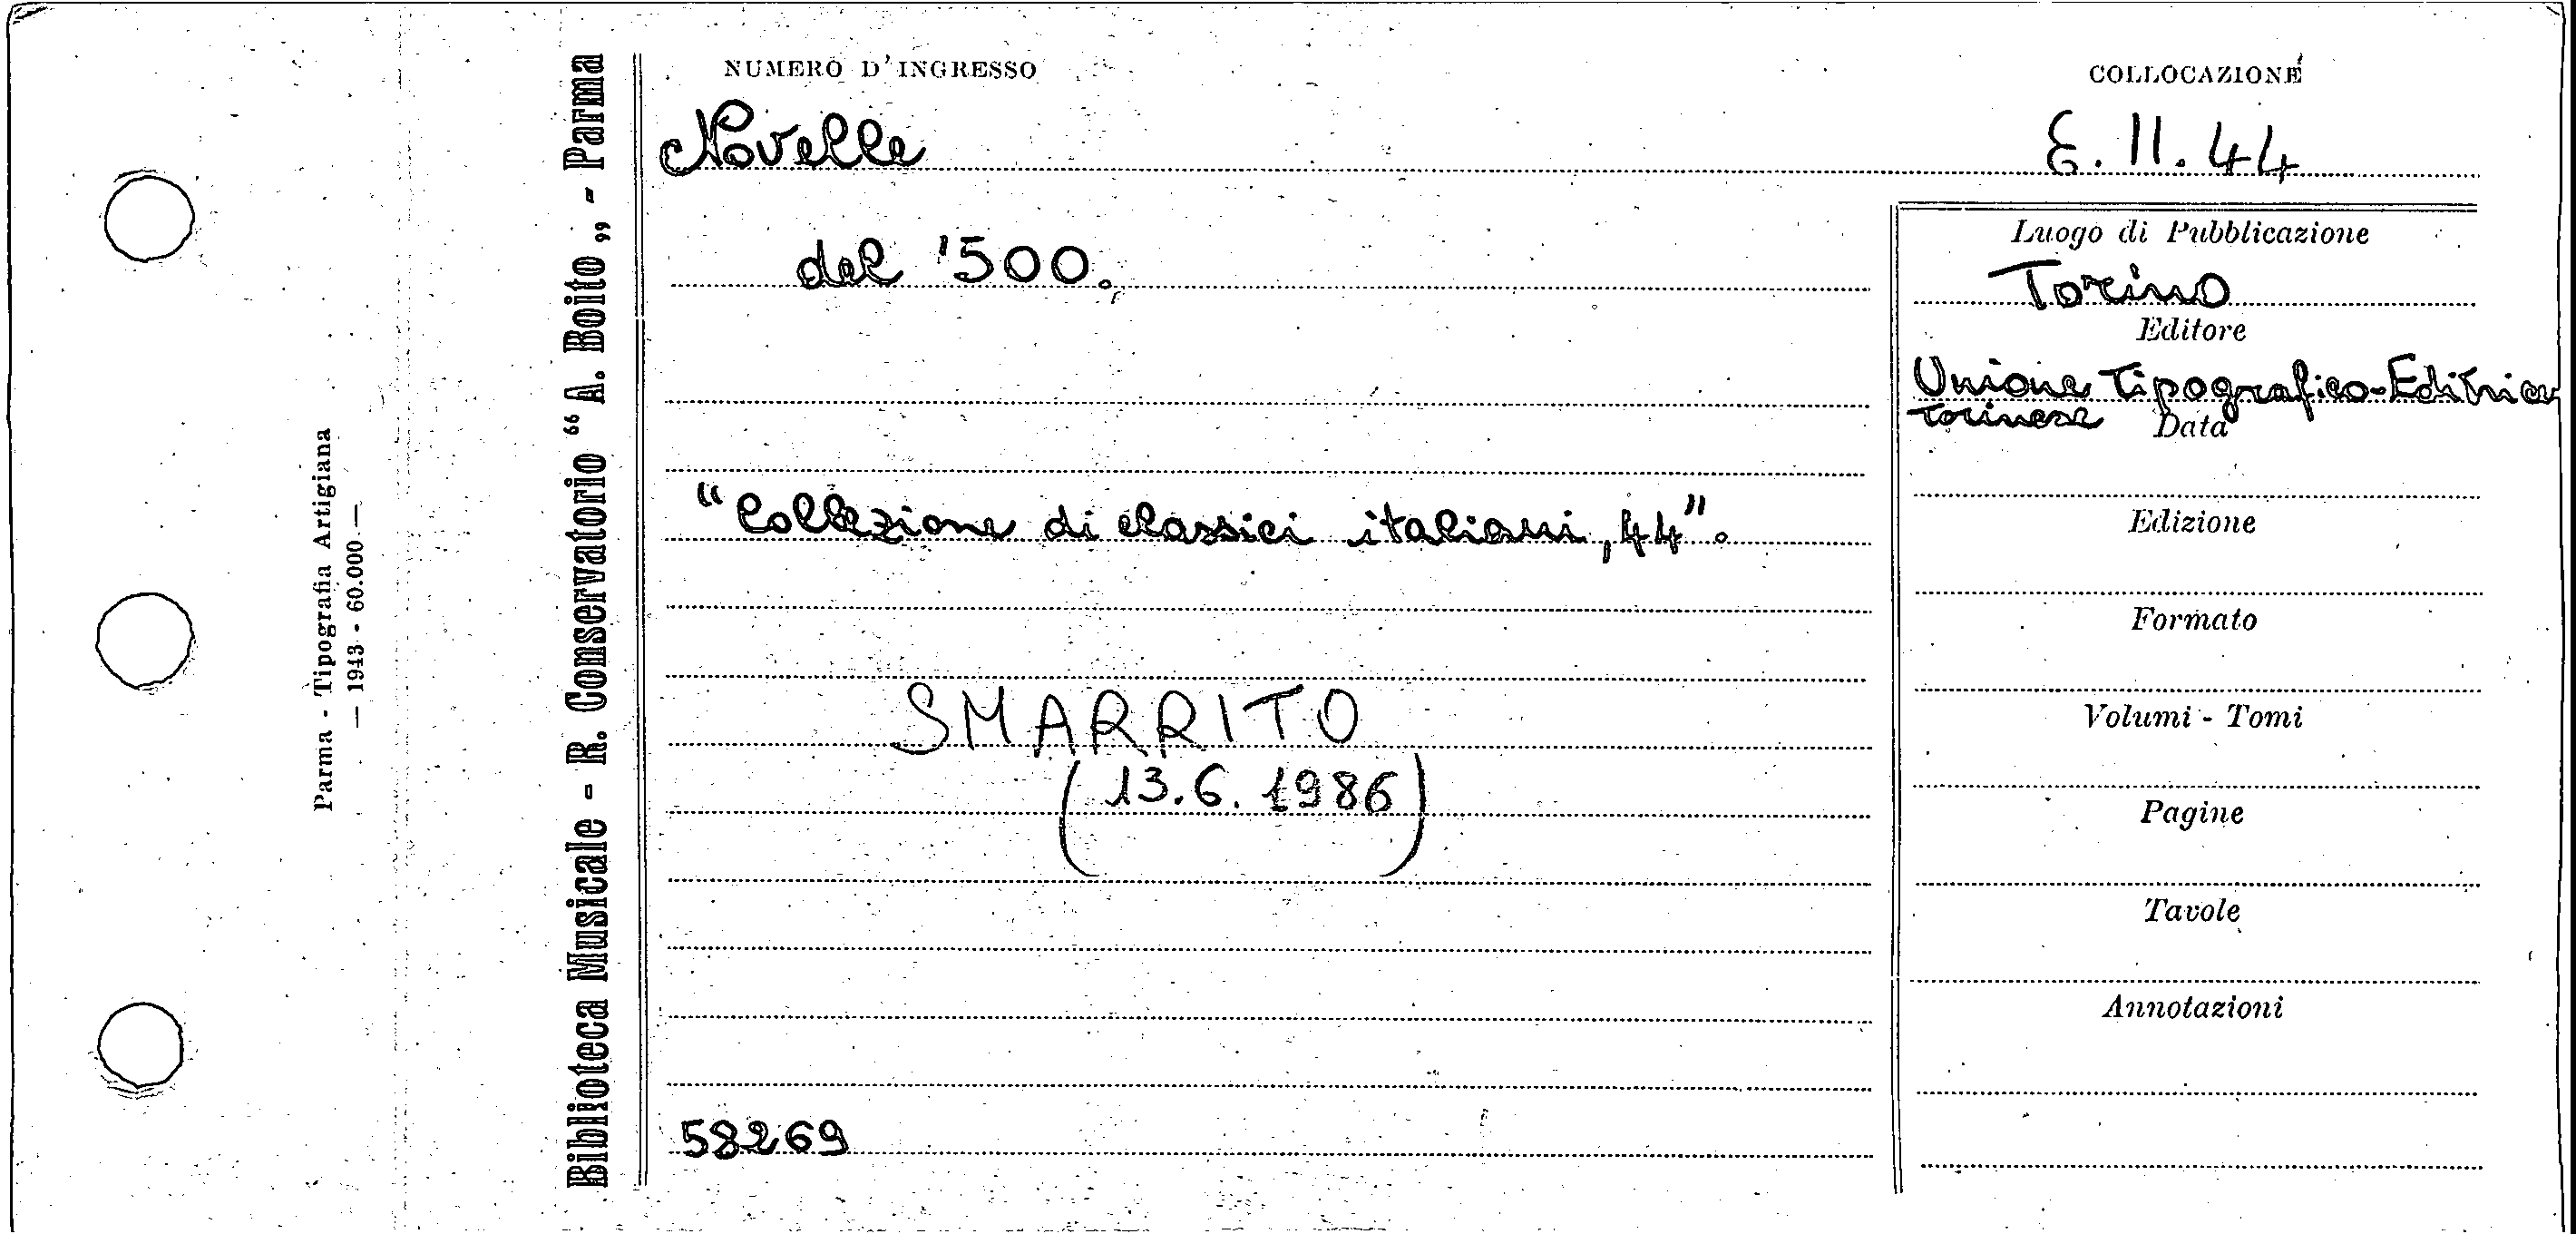 Parma - Tipografia Artigiana
— 1943 - 60.000 —
Biblioteca Musicale - R. Conservatorio “ A. Boito „ - Parma
NUMERO D'INGRESSO
COLLOCAZIONE
Novelle
E. II. 44
del '500.
Luogo di Pubblicazione
Torino
Editore
Unione Tipografico-Editrice
Torinese
Data
"Collezione di classici italiani, 44".
Edizione
Formato
SMARRITO
Volumi - Tomi
(13.6.1986)
Pagine
Tavole
Annotazioni
58269